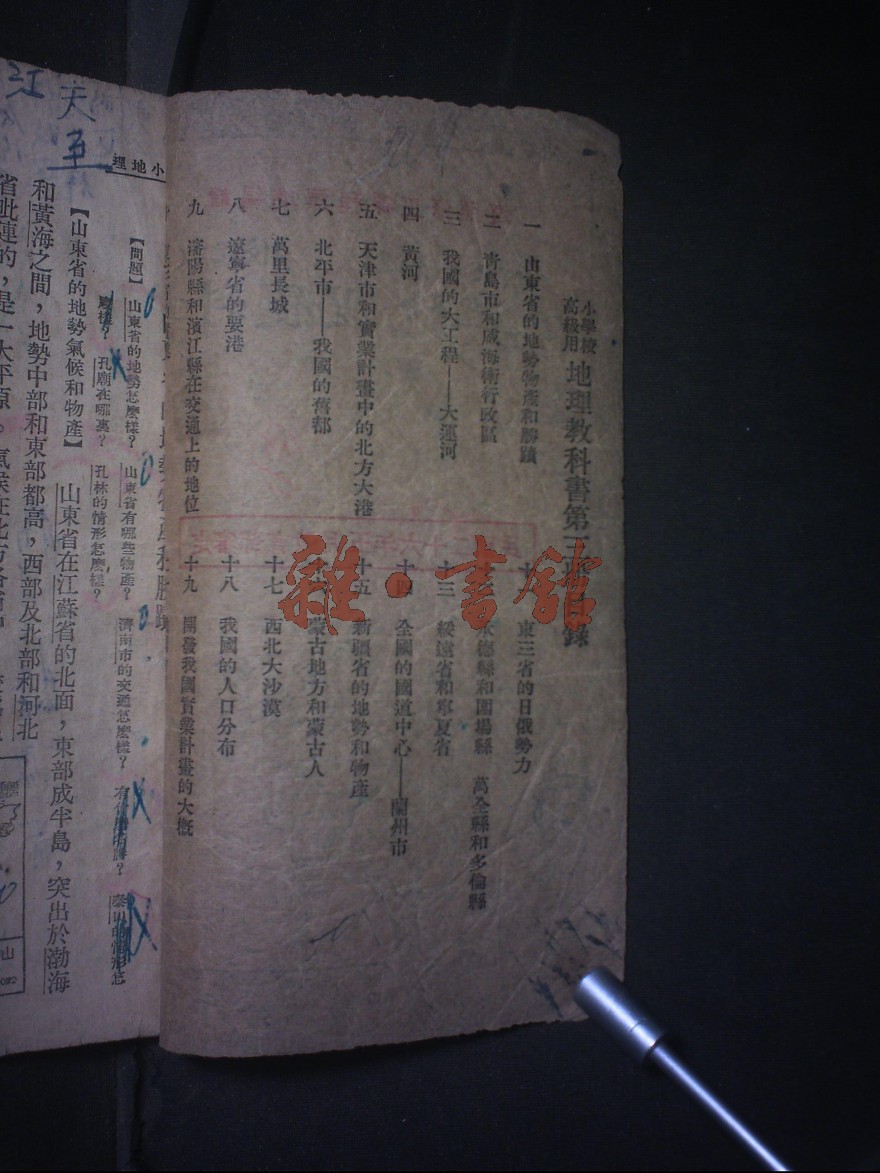 小學校
高級用
地理教科書第三冊目錄
一 山東省的地勢物產和勝蹟
二 青島市和威海衛行政區
三 我國的大工程——大運河
四 黃河
五 天津市和實業計畫中的北方大港
六 北平市——我國的舊都
七 萬里長城
八 遼寧省的要港
九 瀋陽縣和濱江縣在交通上的地位
東三省的日俄勢力
承德縣和圍場縣 萬全縣和多倫縣
十三 綏遠省和寧夏省
十四 全國的國道中心——蘭州市
十五 新疆省的地勢和物產
蒙古地方和蒙古人
十七 西北大沙漠
十八 我國的人口分布
十九 開發我國實業計畫的大概
雜·書館
小地理
天
江
至
【問題】 山東省的地勢怎麼樣？ 山東省有哪些物產？ 濟南市的交通怎麼樣？
孔廟在哪裏？ 孔林的情形怎麼樣？
【山東省的地勢氣候和物產】 山東省在江蘇省的北面，東部成半島，突出於渤海
和黃海之間，地勢中部和東部都高，西部及北部和河北
省毗連的，是一大平原。氣候在北方
山